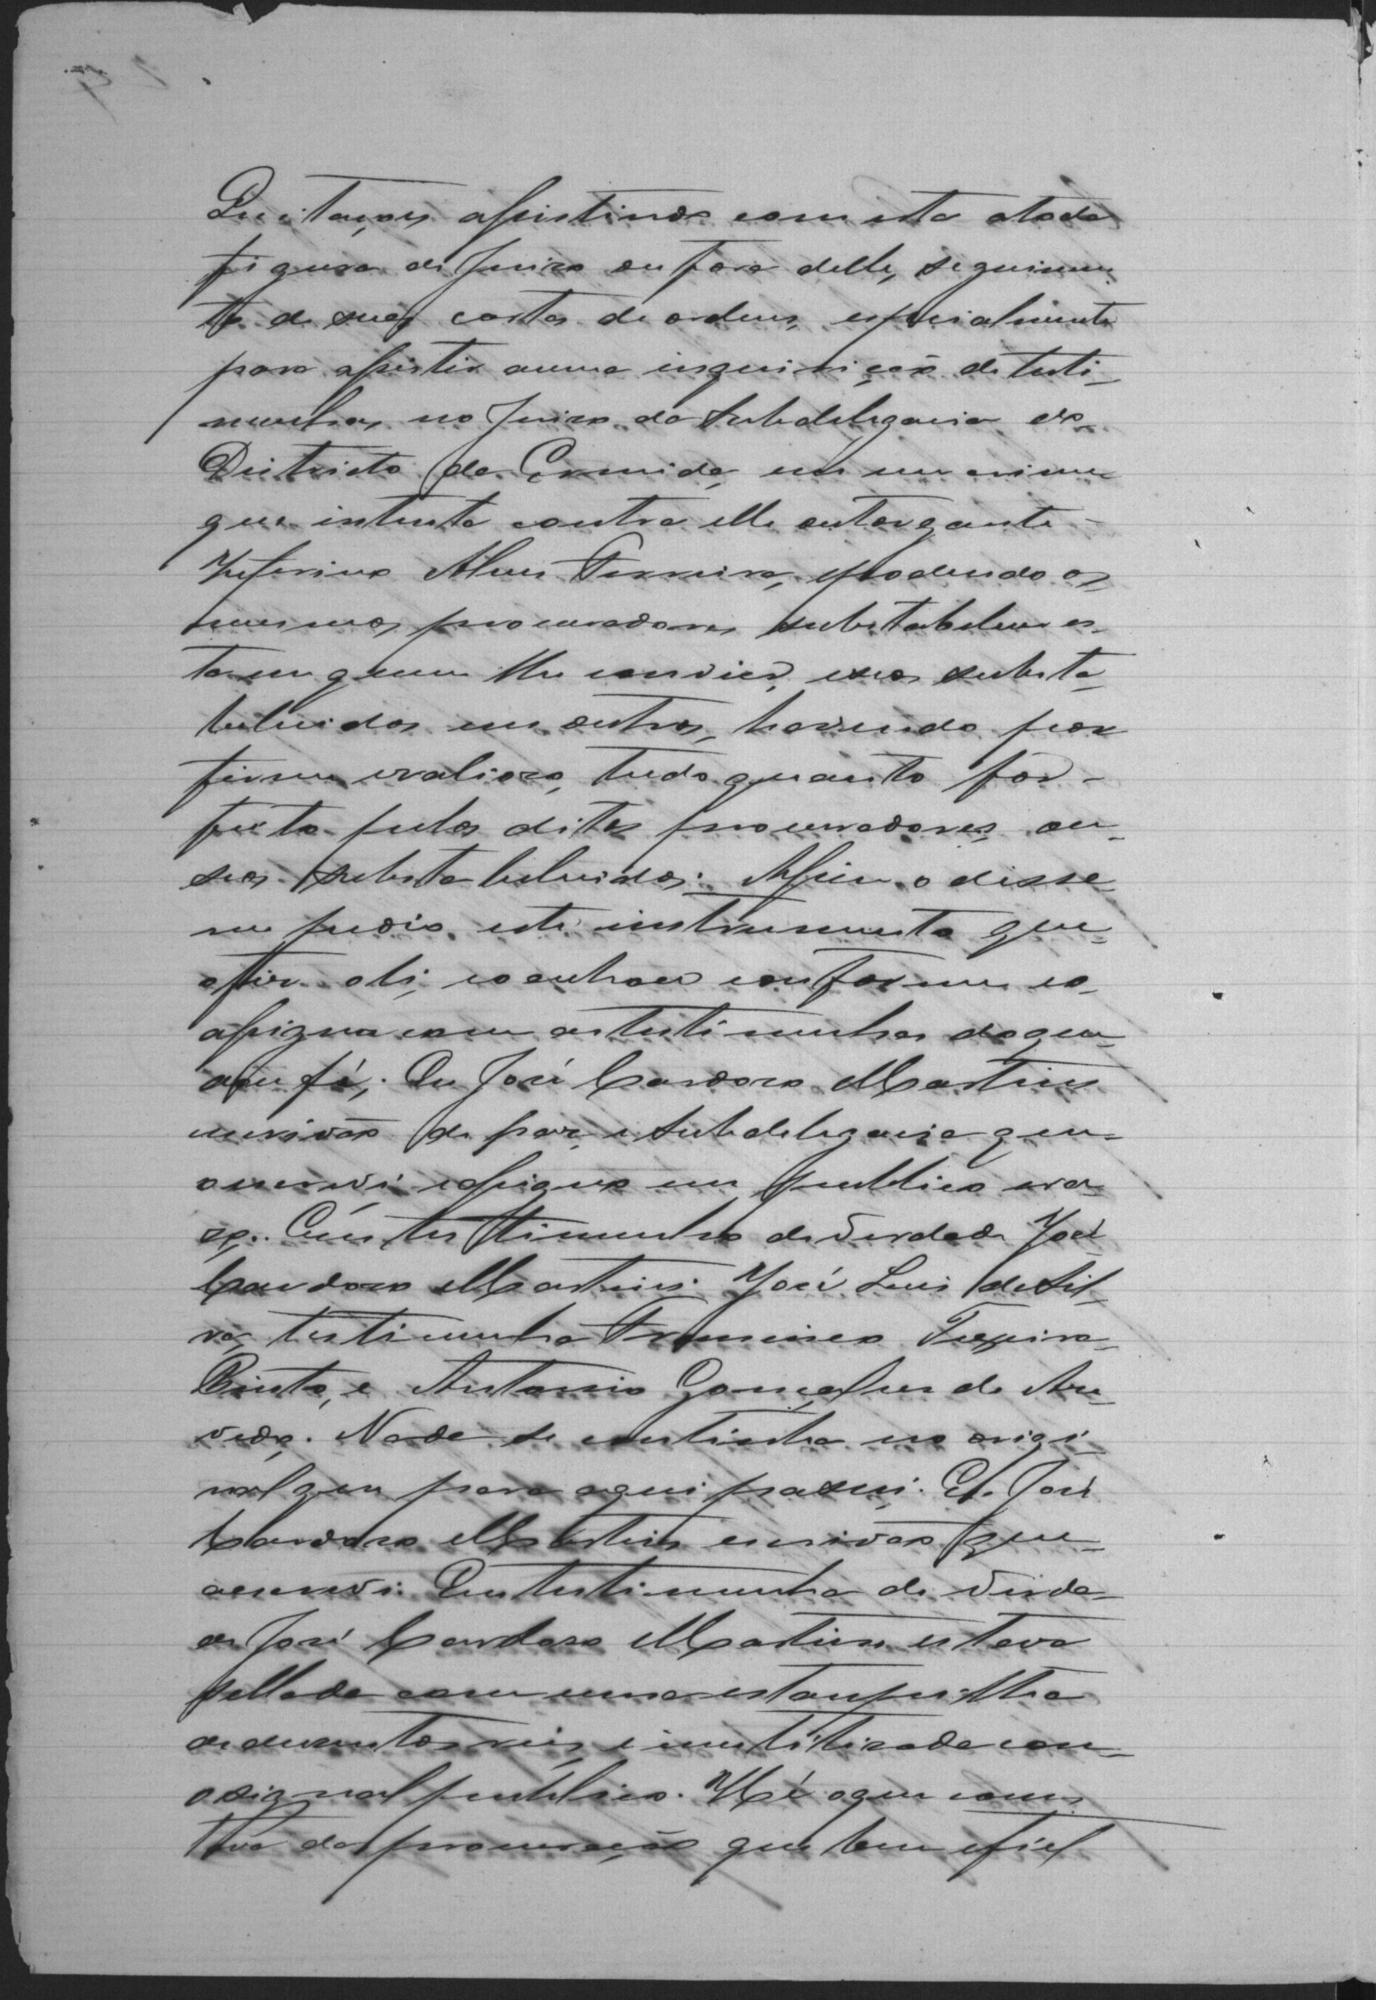 Quitações assistindo com esta a toda
figura de Juizo ou fora delle, seguimen
to de suas cartas de ordens, especialmente
para assistir a uma inquirição de teste-
munhas, no Juizo da Subdelegacia do
Districto da Ermida, em um crime
que intenta contra elle outorgante
Zeferino Alves Ferreira, podendo os
mesmos procuradores substabelecer es-
ta em quem lhe convier, e os substa-
belecidos em outros, havendo por
firme e valioso, tudo quanto for
feito pelos ditos procuradores ou
seos substabelecidos. Assim o disse
me pedio este instrumento que
a li, e o achou conforme e o
assigna com as testemunhas do que
dou fé; Eu José Cardoso Martins
escrivão de paz e subdelegacia que
o escrevi e assigno em publico e ra-
zo. Em testemunho de verdade José
Cardoso Martins. José Luis da Sil-
va, testemunha Francisco Teixeira
Pinto, e Antonio Gonçalves de Aze-
vedo. Nada se continha no origi-
nal que para aqui passei. Eu José
Cardoso Martins escrivão que
o escrevi. Em testemunha de verda-
de José Cardoso Martins estava
sellada com uma estampilha
de duzentos reis, e inutilizada com
o signal publico. He o que cons
tava da procuração que bem e fiel